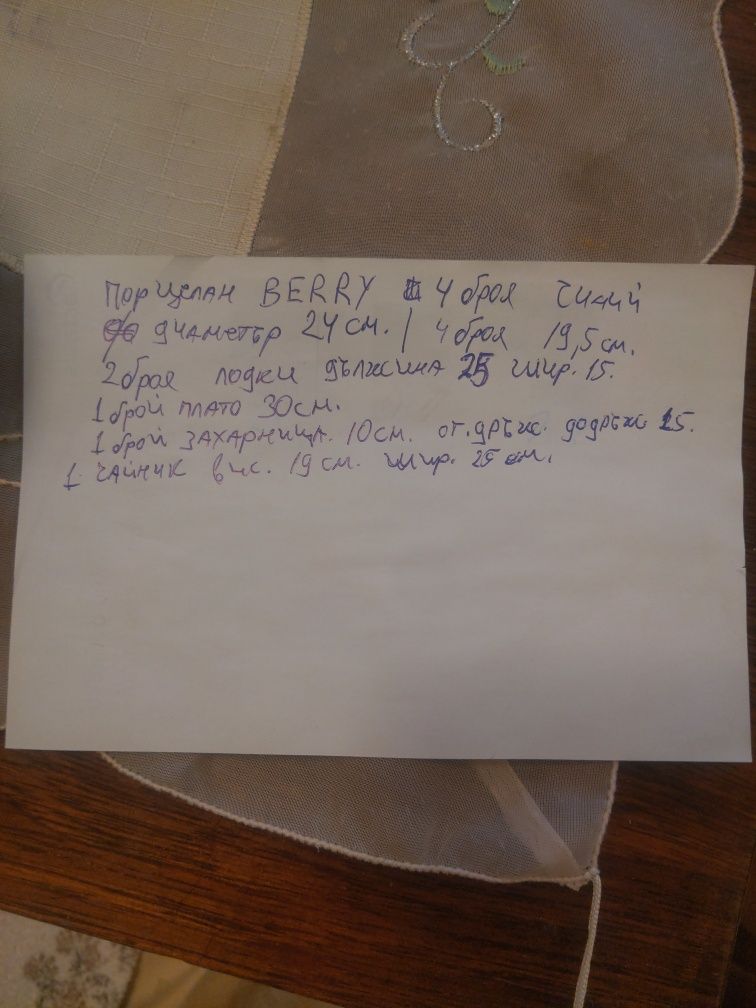 Порцелан BERRY 4 броя чиний
диаметър 24 см. / 4 броя 19,5 см.
2 броя лодки дължина 25 шир. 15.
1 брой плато 30 см.
1 брой захарница. 10 см. от. дръж. додръж 15.
1. чайник вис. 19 см. шир. 25 см.